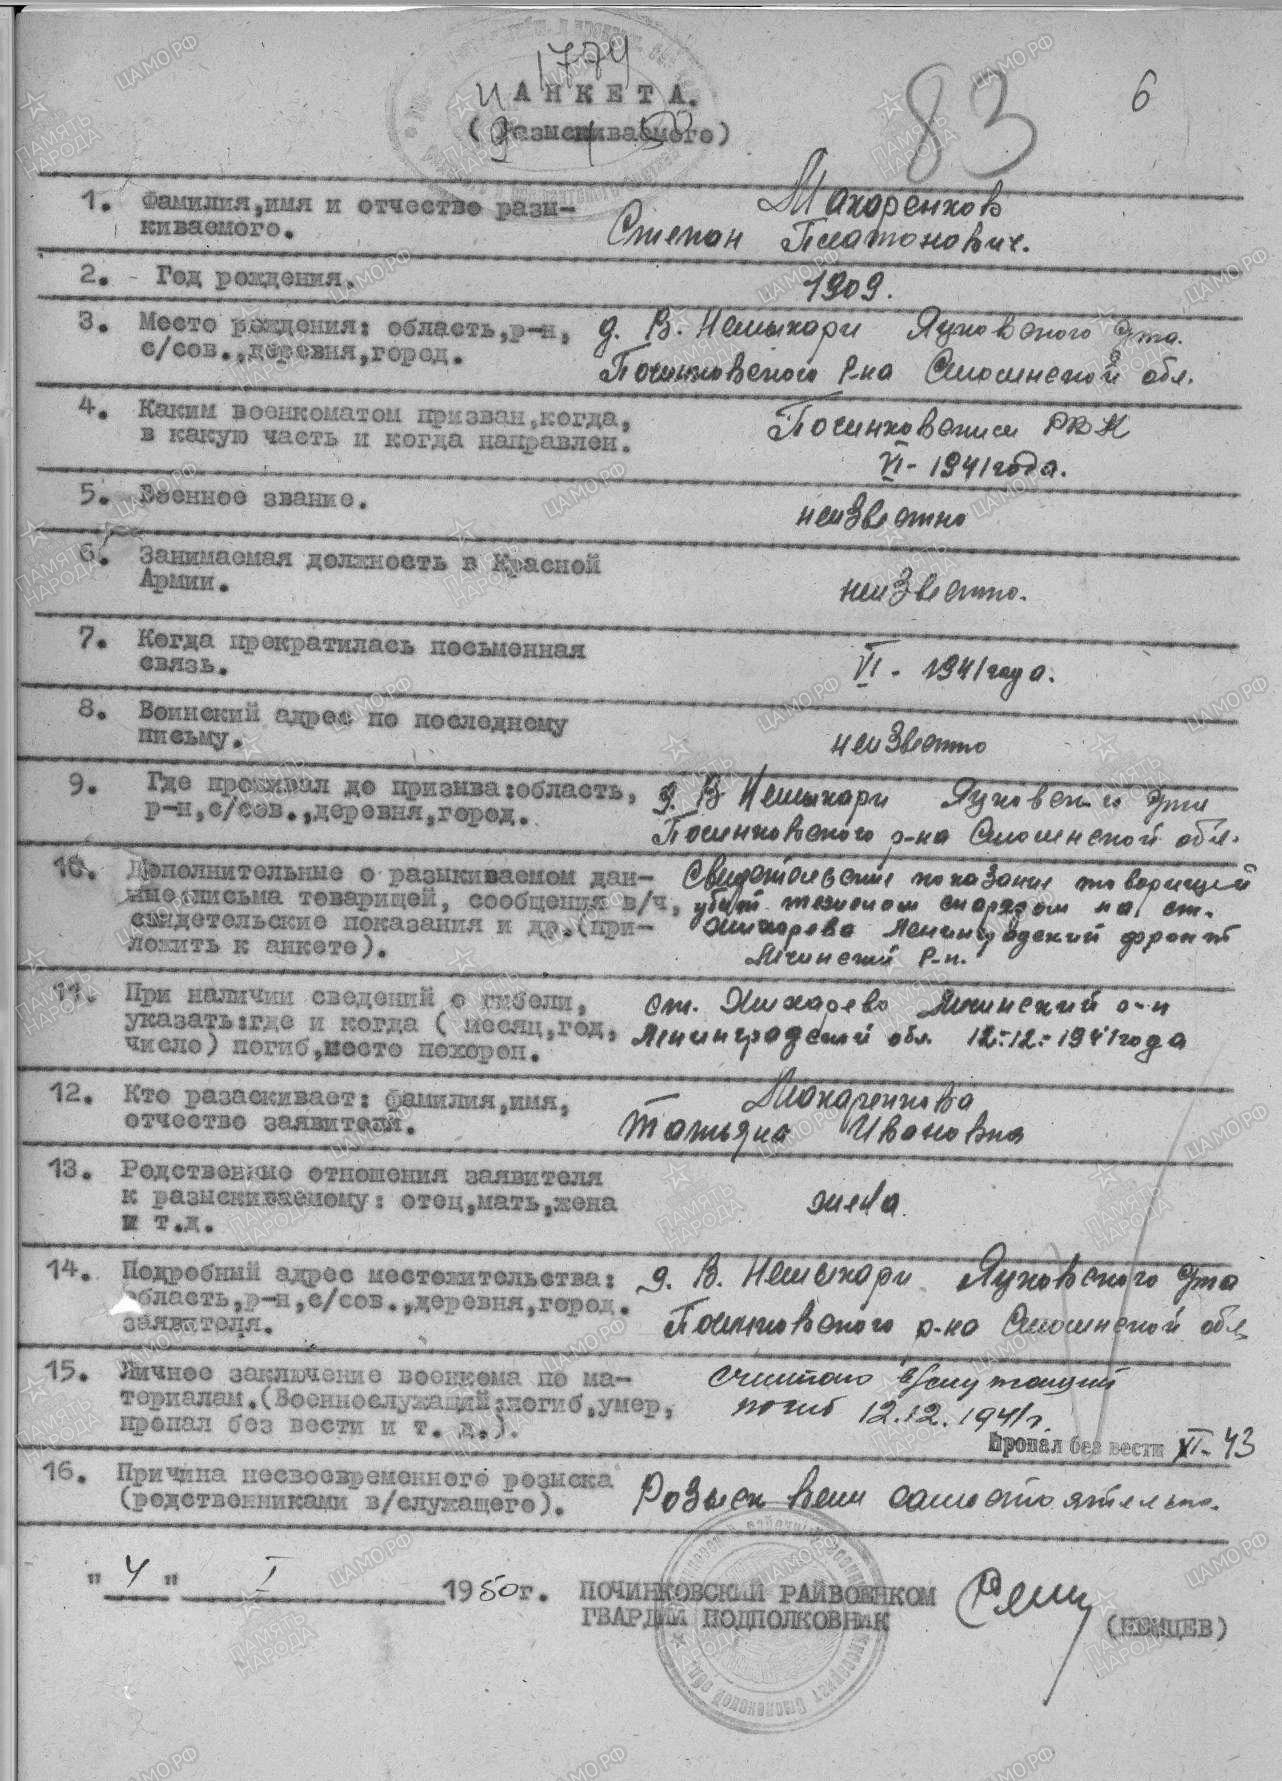 1774
83
6
А Н К Е Т А.
(Разыскиваемого)
1. Фамилия,имя и отчество разы-
киваемого.
Макаренков
Степан Платонович.
2. Год рождения.
1909.
3. Место рождения: область,р-н,
с/сов.,деревня,город.
д. В. Немыкари Яцковского
Починковского р-на Смоленской обл.
4. Каким военкоматом призван,когда,
в какую часть и когда направлен.
Починковским РВК
VI - 1941 года.
5. Военное звание.
неизвестно
6. Занимаемая должность в Красной
Армии.
неизвестно.
7. Когда прекратилась письменная
связь.
VI - 1941 года.
8. Воинский адрес по последнему
письму.
неизвестно
9. Где проживал до призыва:область,
р-н,с/сов.,деревня,город.
д. В Немыкари Яцковского
Починковского р-на Смоленской обл.
10. Дополнительные о разыкиваемом дан-
ные:письма товарищей, сообщения в/ч,
свидетельские показания и др.(при-
ложить к анкете).
Свидетельские показание товарищей
убит тяжелом снарядом на ст.
Жихарево Ленинградский фронт
Мгинский р-н.
11. При наличии сведений о гибели,
указать:где и когда ( месяц,год,
число) погиб,место похорон.
ст. Жихарево Мгинский р-н
Ленинградской обл. 12-12-1941 года
12. Кто разаскивает: фамилия,имя,
отчество заявителя.
Макаренкова
Татьяна Ивановна
13. Родственные отношения заявителя
к разыскиваемому: отец,мать,жена
и т.д.
жена.
14. Подробный адрес местожительства:
область,р-н,с/сов.,деревня,город.
заявителя.
д. В. Немыкари Яцковского
Починковского р-на Смоленской обл.
15. Личное заключение военкома по ма-
териалам.(Военнослужащий:погиб,умер,
пропал без вести и т. д.).
считаю в/служащий
погиб 12.12.1941г.
Пропал без вести XI-43
16. Причина несвоевременного розыска
(родственниками в/служащего).
Розыск вели самостоятельно.
" 4 " I 1950г. ПОЧИНКОВСКИЙ РАЙВОЕНКОМ
ГВАРДИИ ПОДПОЛКОВНИК
(НЕМЦЕВ)